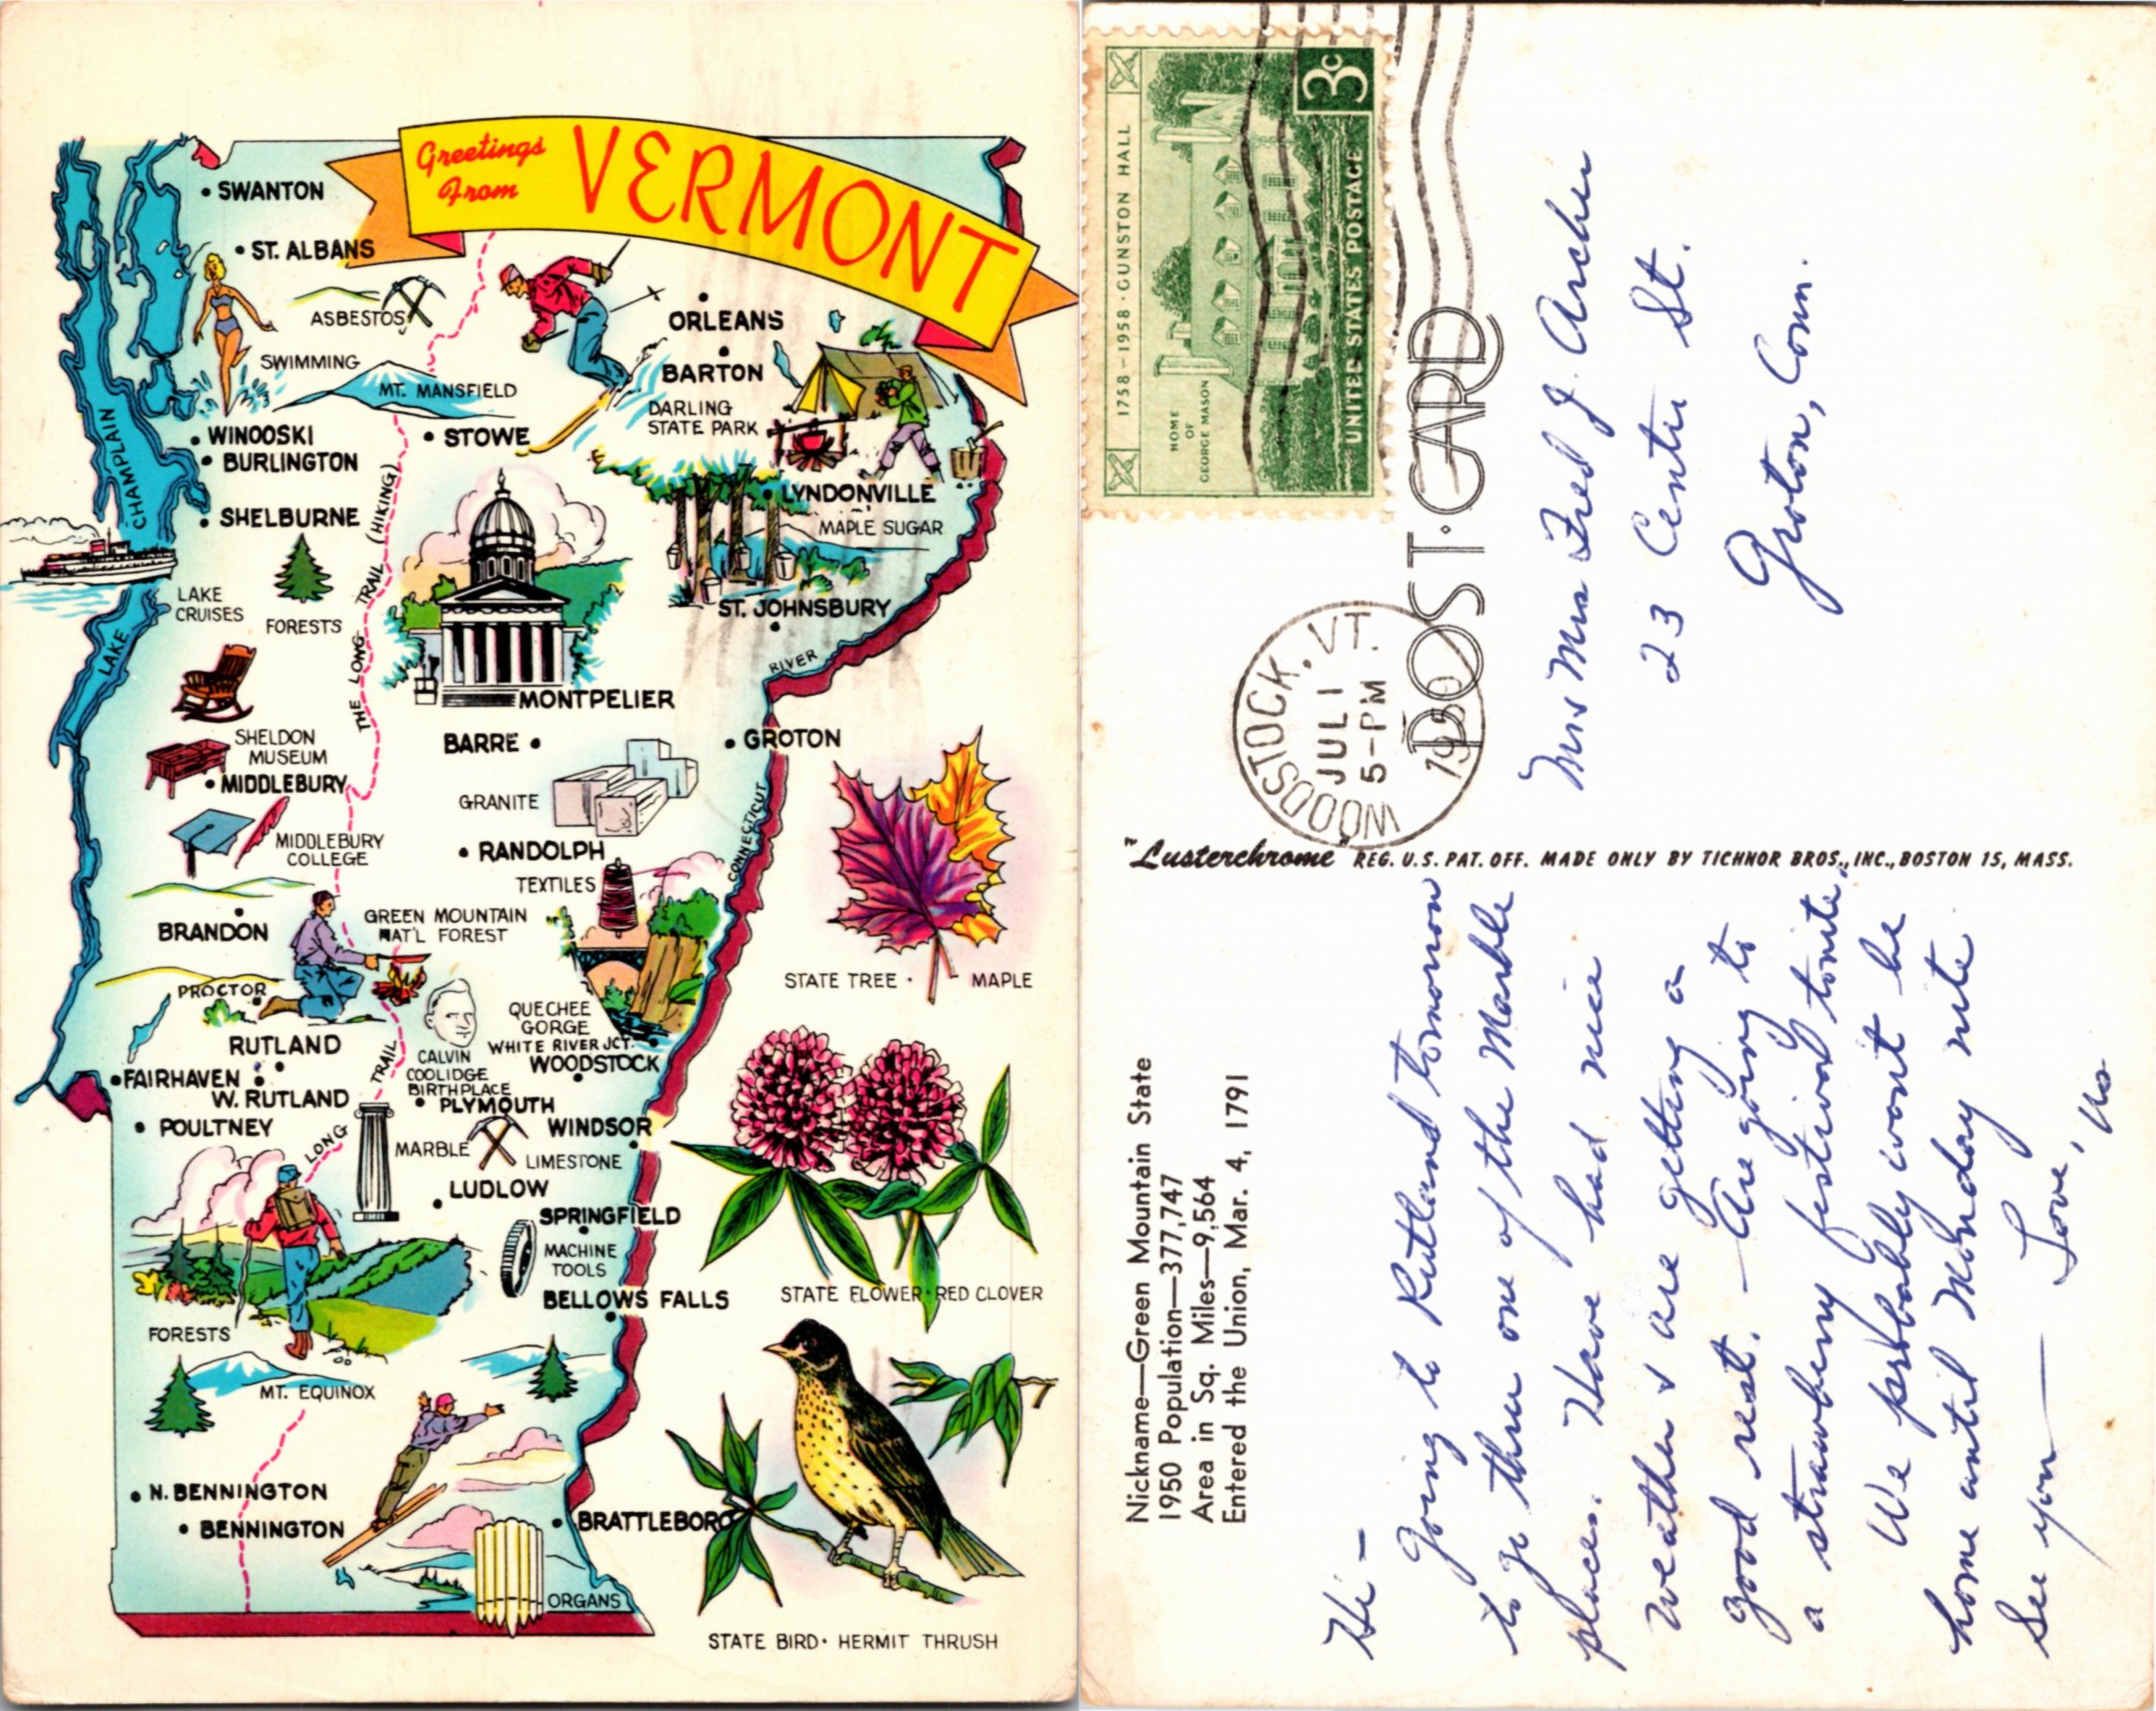 Greetings
From
VERMONT
SWANTON
ST. ALBANS
ASBESTOS
SWIMMING
MT. MANSFIELD
ORLEANS
BARTON
DARLING
STATE PARK
WINOOSKI
BURLINGTON
STOWE
CHAMPLAIN
LAKE
SHELBURNE
THE LONG TRAIL (HIKING)
LYNDONVILLE
MAPLE SUGAR
LAKE
CRUISES
FORESTS
ST. JOHNSBURY
RIVER
MONTPELIER
SHELDON
MUSEUM
MIDDLEBURY
BARRE
GROTON
GRANITE
MIDDLEBURY
COLLEGE
RANDOLPH
TEXTILES
CONNECTICUT
BRANDON
GREEN MOUNTAIN
NAT'L FOREST
STATE TREE • MAPLE
PROCTOR
QUECHEE
GORGE
WHITE RIVER JCT.
RUTLAND
CALVIN
COOLIDGE
BIRTHPLACE
WOODSTOCK
FAIRHAVEN
W. RUTLAND
TRAIL
PLYMOUTH
POULTNEY
LONG
MARBLE
WINDSOR
LIMESTONE
LUDLOW
SPRINGFIELD
MACHINE
TOOLS
BELLOWS FALLS
STATE FLOWER • RED CLOVER
FORESTS
MT. EQUINOX
N. BENNINGTON
BENNINGTON
BRATTLEBORO
ORGANS
STATE BIRD • HERMIT THRUSH
Nickname—Green Mountain State
1950 Population—377,747
Area in Sq. Miles—9,564
Entered the Union, Mar. 4, 1791
Hi –
Going to Rutland tomorrow
to go thru one of the Marble
places. Have had nice
weather & are getting a
good rest. – Are going to
a strawberry festival tonite.
We probably won't be
home until Monday nite
See you —
Love,
"Lusterchrome" REG. U.S. PAT. OFF. MADE ONLY BY TICHNOR BROS., INC., BOSTON 15, MASS.
1758–1958 • GUNSTON HALL
HOME
OF
GEORGE MASON
3c
UNITED STATES POSTAGE
WOODSTOCK, VT.
JUL 1
5-PM
POST•CARD
Mrs Fred J. Archer
23 Center St.
Groton, Conn.